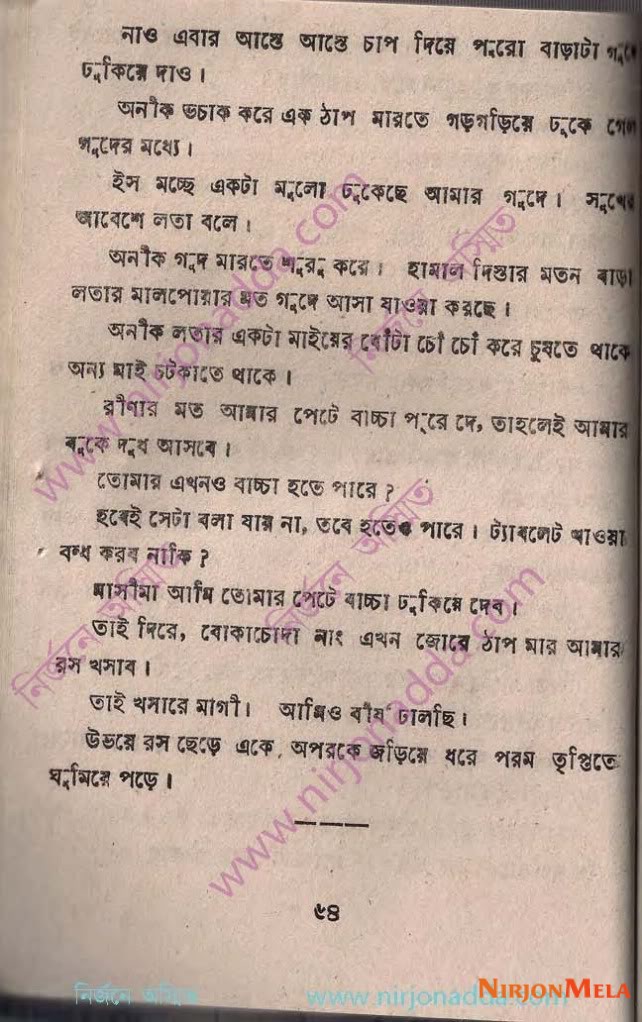 নাও এবার আস্তে আস্তে চাপ দিয়ে পুরো বাড়াটা
ঢুকিয়ে দাও।
অনীক ভচাক করে এক ঠাপ মারতে গড়গড়িয়ে ঢুকে গেল
গুদের মধ্যে।
ইস মচ্ছে একটা মুলো ঢুকেছে আমার গুদে। সুখের
আবেশে লতা বলে।
অনীক গুদ মারতে শুরু করে। হামাল দিস্তার মতন বাড়া
লতার মালপোয়ার মত গুদে আসা যাওয়া করছে।
অনীক লতার একটা মাইয়ের বোঁটা চোঁ চোঁ করে চুষতে থাকে
অন্য মাই চটকাতে থাকে।
রীণার মত আমার পেটে বাচ্চা পুরে দে, তাহলেই আমার
বুকে দুধ আসবে।
তোমার এখনও বাচ্চা হতে পারে?
হবেই সেটা বলা যায় না, তবে হতেও পারে। ট্যাবলেট খাওয়া
বন্ধ করব নাকি?
মাসীমা আমি তোমার পেটে বাচ্চা ঢুকিয়ে দেব।
তাই দিরে, বোকাচোদা নাং এখন জোরে ঠাপ মার আমার
রস খসাব।
তাই খসারে মাগী। আমিও বীর্য ঢালছি।
উভয়ে রস ছেড়ে একে অপরকে জড়িয়ে ধরে পরম তৃপ্তিতে
ঘুমিয়ে পড়ে।
৯৪
www.nirjonadda.com
নির্জনে অমিত
www.nirjonadda.com
নির্জনে অমিত
নির্জনে অমিত
নির্জনে অমিত
www.nirjonadda.com
NIRJONMELA